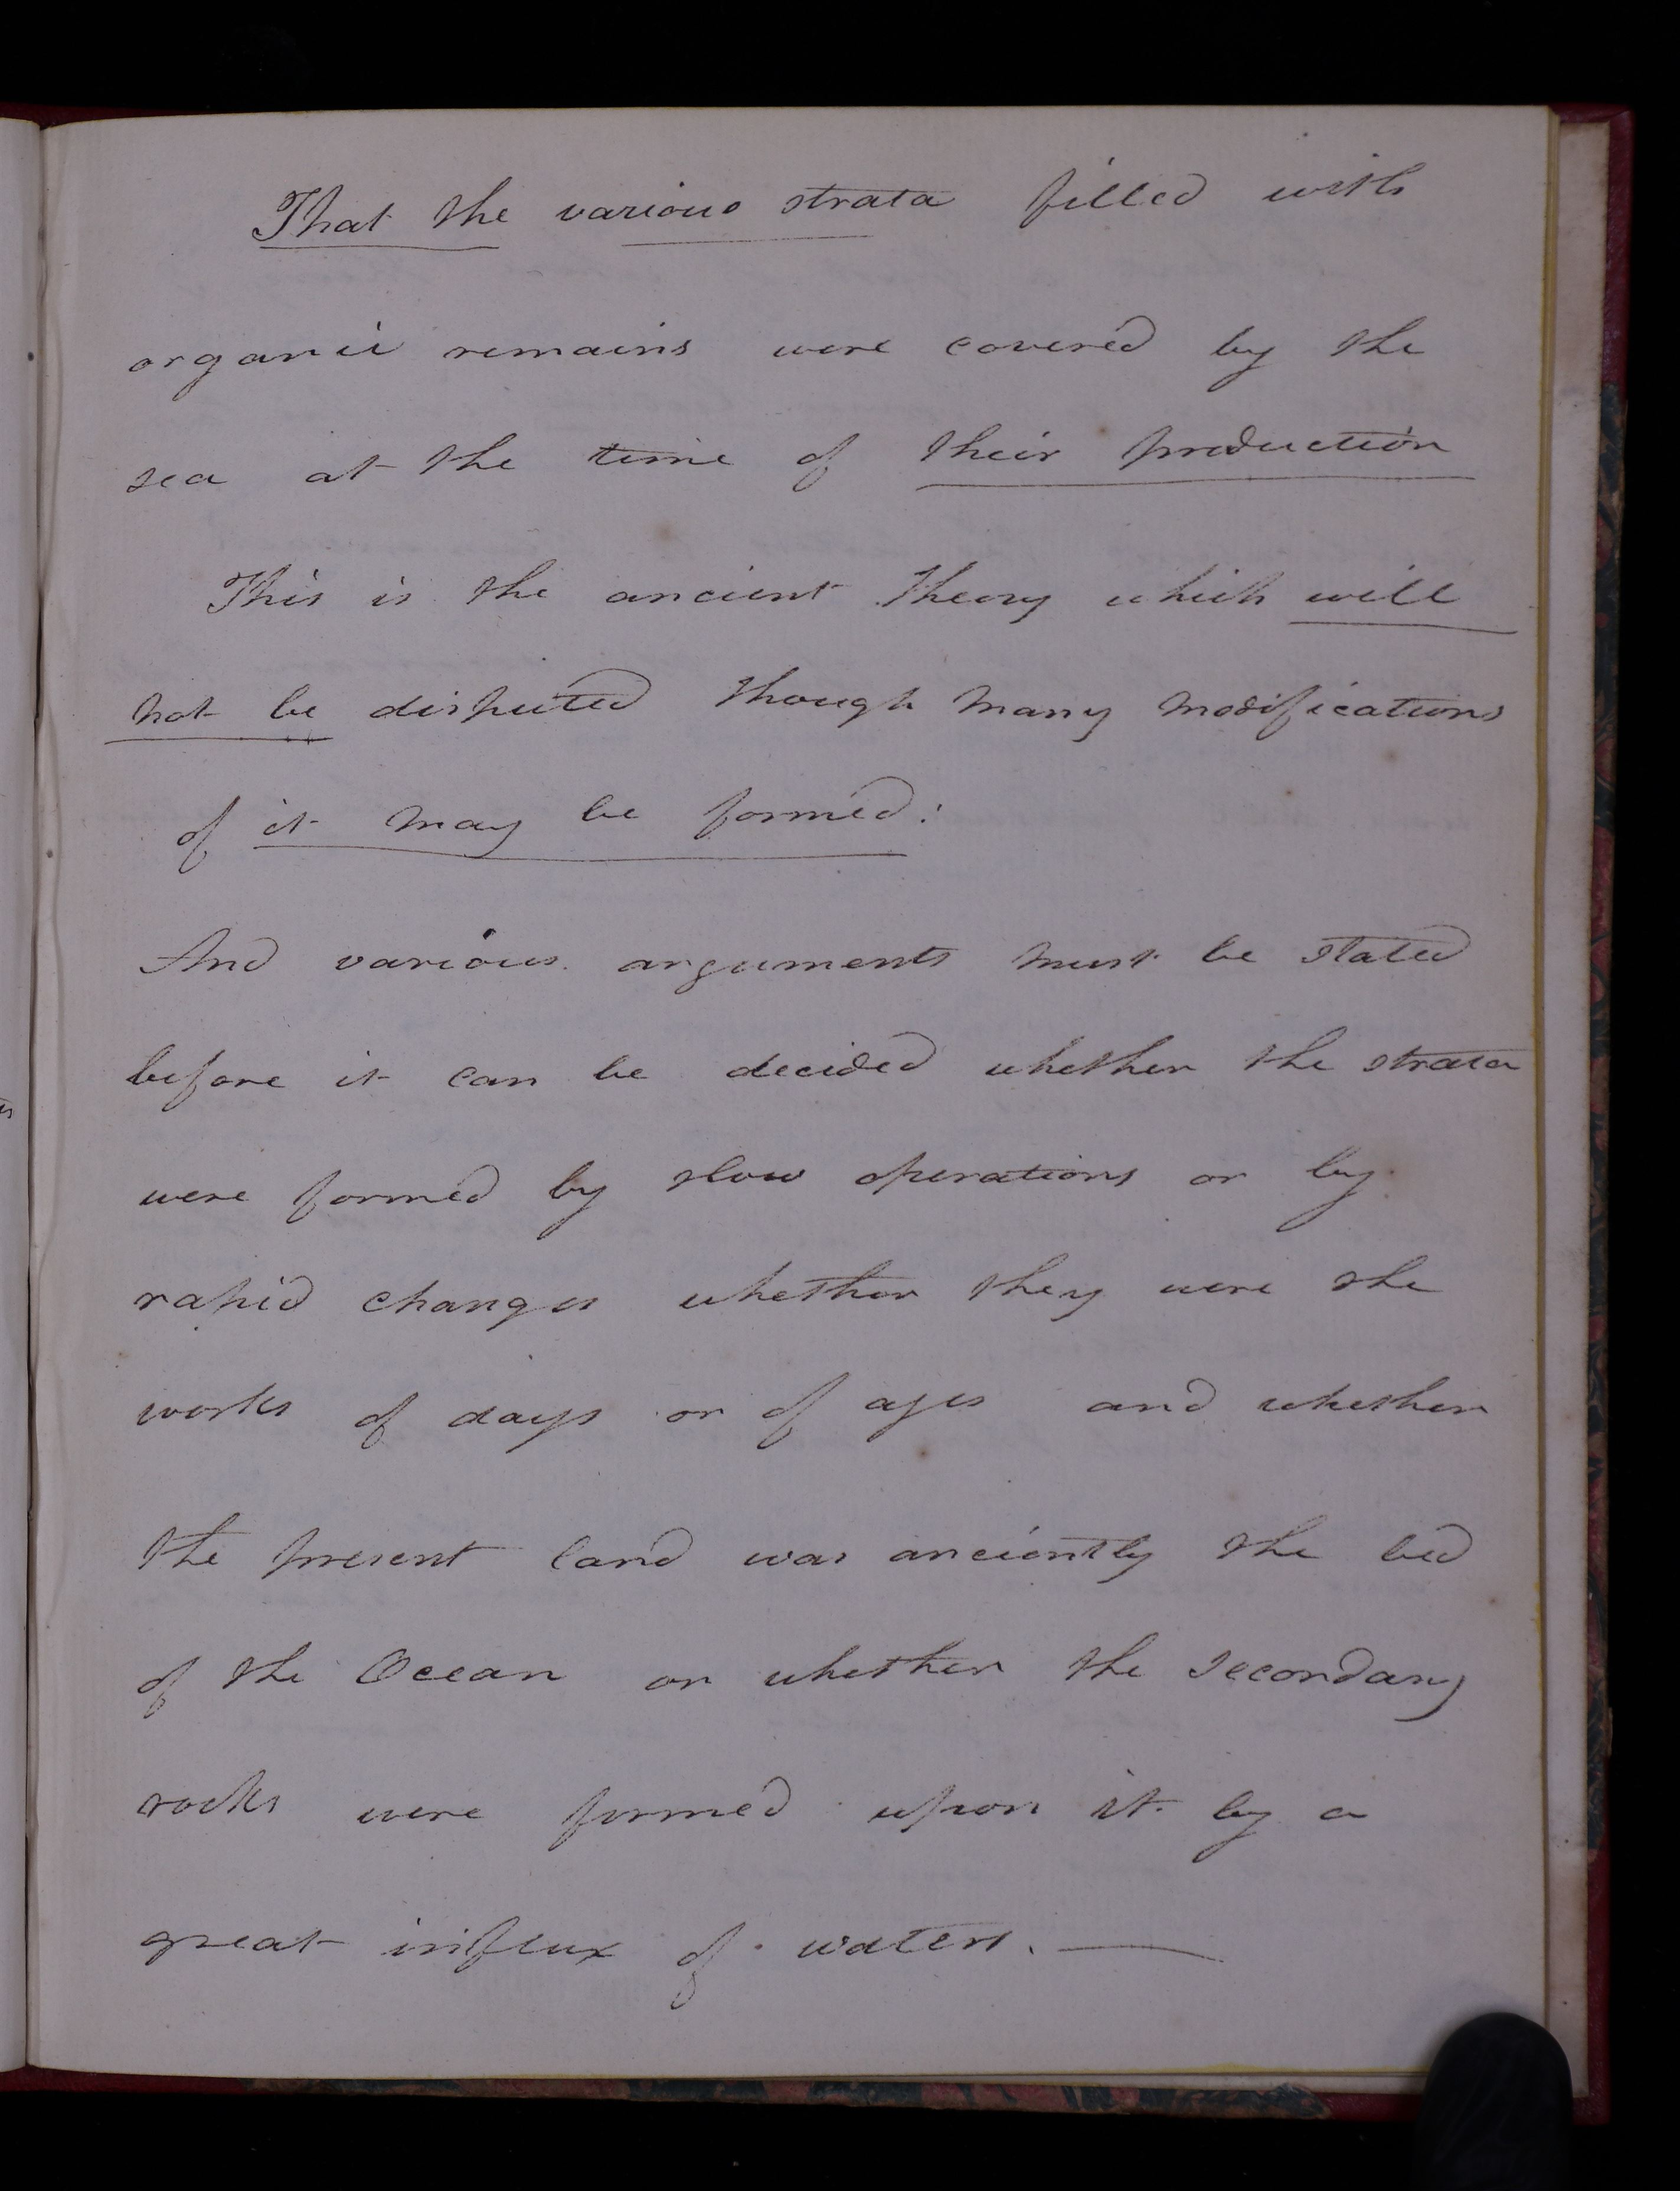 That the various strata filled with
organic remains were covered by the
sea at the time of their production
This is the ancient Theory which will
not be disputed though many modifications
of it may be formed:
And various arguments must be stated
before it can be decided whether the strata
were formed by slow operations or by
rapid changes whether they were the
works of days or of ages and whether
the present land was anciently the bed
of the Ocean or whether the secondary
rocks were formed upon it by a
great influx of waters. —